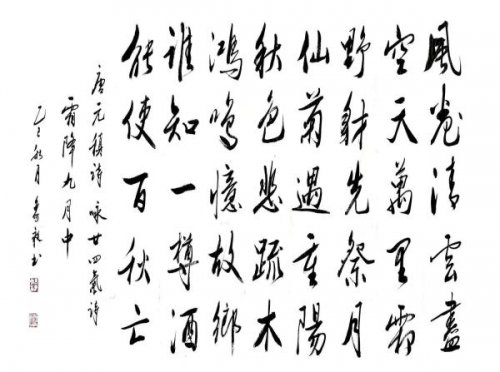 風卷清雲盡
空天萬里霜
野豺先祭月
仙菊遇重陽
秋色悲疏木
鴻鳴憶故鄉
誰知一樽酒
能使百秋亡
唐元稹詩 咏廿四氣詩
霜降九月中
秋月 書